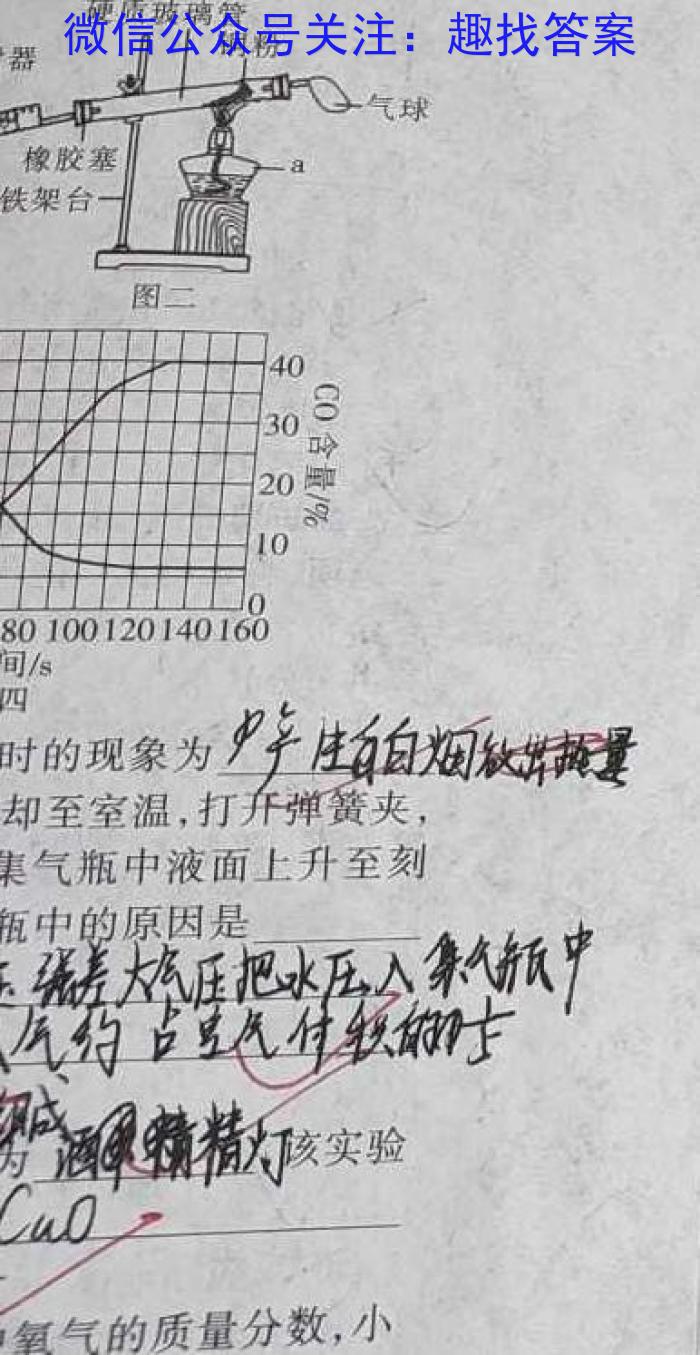 硬质玻璃管
微信公众号关注：趣找答案
铜粉
器
气球
橡胶塞
a
铁架台
图二
40
30
20
10
0
CO含量/%
80 100 120 140 160
间/s
四
时的现象为 产生白烟放出热量
却至室温,打开弹簧夹,
集气瓶中液面上升至刻
瓶中的原因是
强差大气压把水压入集气瓶中
气约占空气体积的
为 酒精灯 该实验
CuO
氧气的质量分数,小